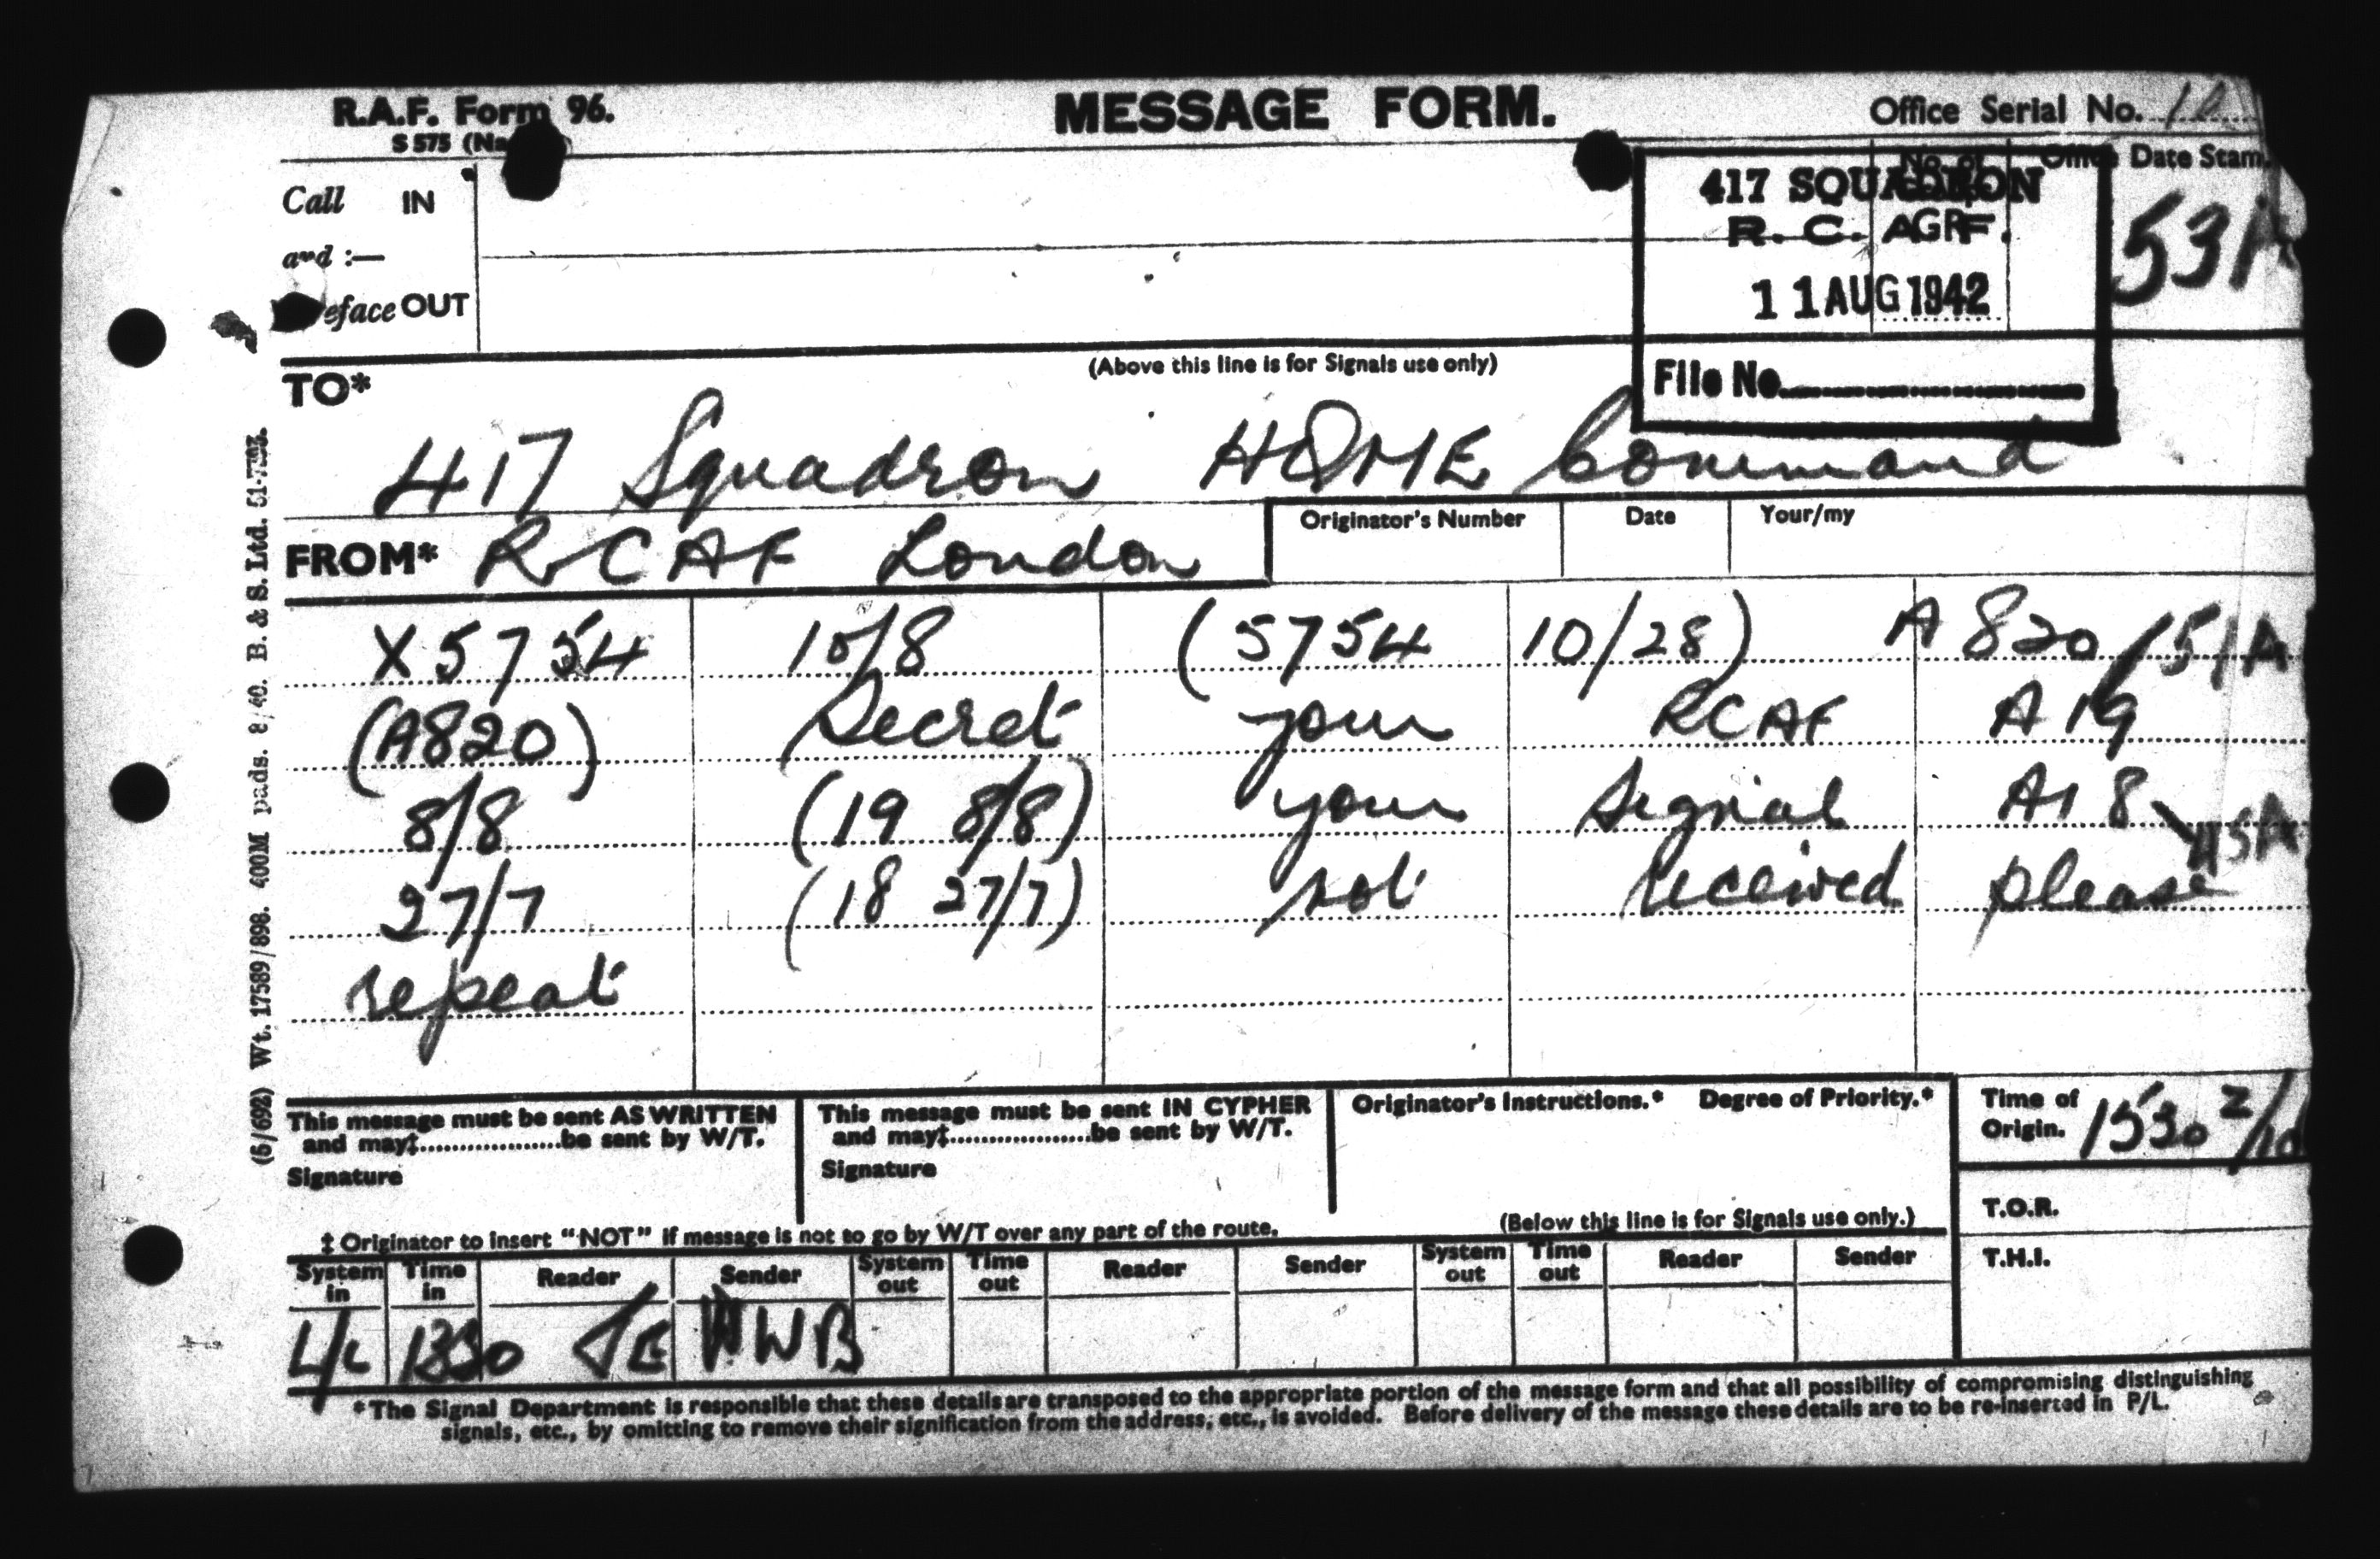 R.A.F. Form 96.
MESSAGE FORM.
Office Serial No.
S 575 (Na
Office Date Stam.
Call IN
and :—
eface OUT
417 SQUADRON
R. C. A. F.
11 AUG 1942
File No.
53A
(Above this line is for Signals use only)
TO*
417 Squadron HOME Command
FROM* RCAF London
Originator's Number Date Your/my
X5754 10/8 (5754 10/28) A820 /51A
(A820) Secret your RCAF A19
8/8 (19 8/8) your Signal A18 45A
27/7 (18 27/7) not received please
repeat
(5/692) Wt. 17589/898. 400M pads. 8/40. B. & S. Ltd.
This message must be sent AS WRITTEN
and may‡ be sent by W/T.
Signature
This message must be sent IN CYPHER
and may‡ be sent by W/T.
Signature
Originator's Instructions.* Degree of Priority.*
Time of
Origin. 1530 Z/10
(Below this line is for Signals use only.)
T.O.R.
T.H.I.
‡ Originator to insert "NOT" if message is not to go by W/T over any part of the route.
System in Time in Reader Sender System out Time out Reader Sender System out Time out Reader Sender
L/L JE HWB
*The Signal Department is responsible that these details are transposed to the appropriate portion of the message form and that all possibility of compromising distinguishing
signals, etc., by omitting to remove their signification from the address, etc., is avoided. Before delivery of the message these details are to be re-inserted in P/L.